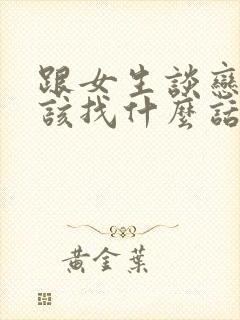 跟女生談戀
該找什麼話
黃金葉